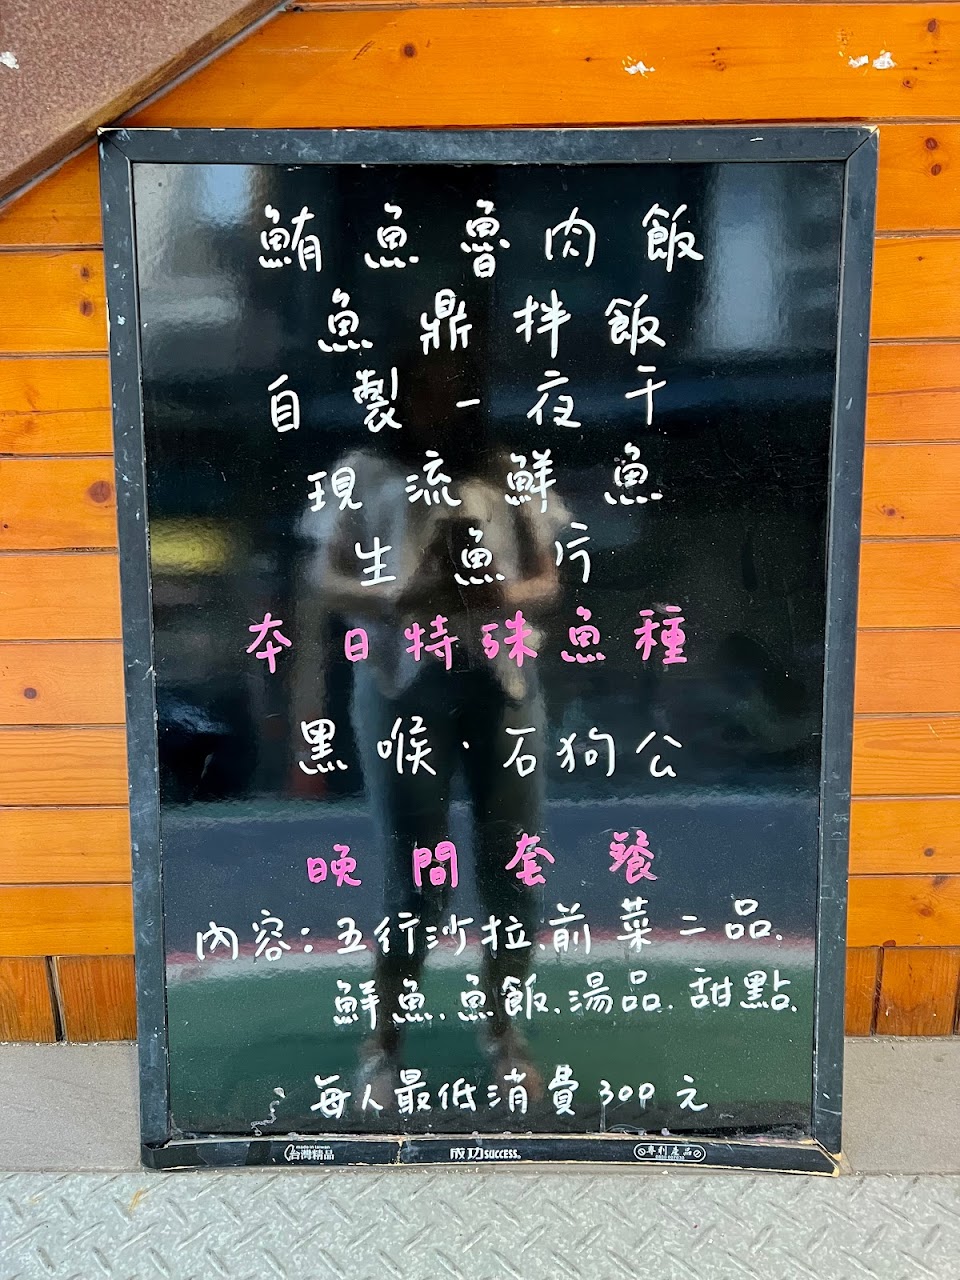 鮪魚魯肉飯
魚鼎拌飯
自製一夜干
現流鮮魚
生魚片
本日特殊魚種
黑喉·石狗公
晚間套餐
內容:五行沙拉.前菜二品.
鮮魚.魚飯.湯品.甜點.
每人最低消費300元
台灣精品 成功SUCCESS® 專利產品